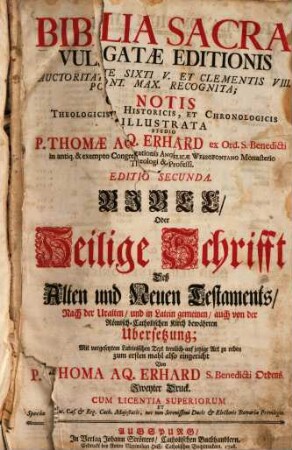 BIBLIA SACRA
VULGATÆ EDITIONIS
AUCTORITATE SIXTI V. ET CLEMENTIS VIII.
PONT. MAX. RECOGNITA;
NOTIS
THEOLOGICIS, HISTORICIS, ET CHRONOLOGICIS
ILLUSTRATA
STUDIO
P. THOMÆ AQ. ERHARD ex Ord. S. Benedicti
in antiq. & exempto Monasterio
Theologi & Professi.
EDITIO SECUNDA.
BIBEL/
Oder
Heilige Schrifft
Deß
Alten und Neuen Testaments/
Nach der Uralten / und in Latein gemeinen / auch von der
Römisch-Catholischen Kirch bewährten
Übersetzung;
Mit vorgesetzten Lateinischen Text treulich auf jetzige Art zu reden
zum ersten mahl also eingericht
Von
P. THOMA AQ. ERHARD S. Benedicti Ordens.
Zweyter Druck.
CUM LICENTIA SUPERIORUM
ET
AUGSPURG/
In Verlag Johann Strötters / Catholischen Buchhandlers.